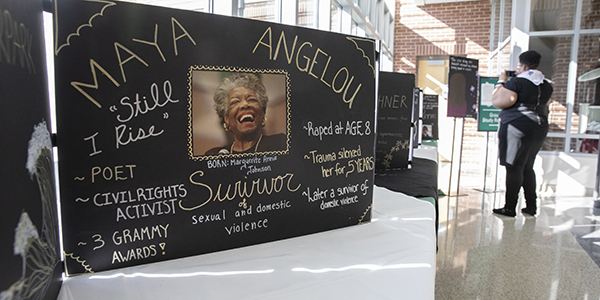 MAYA ANGELOU
"Still
I Rise"
~ POET
~ CIVILRIGHTS
ACTIVIST
~ 3 GRAMMY
AWARDS!
BORN: Marguerite Annie
Johnson
Survivor
of
sexual and domestic
violence
~ Raped at AGE 8
~ Trauma silenced
her for 5 YEARS
~ Later a survivor of
domestic violence
HNER